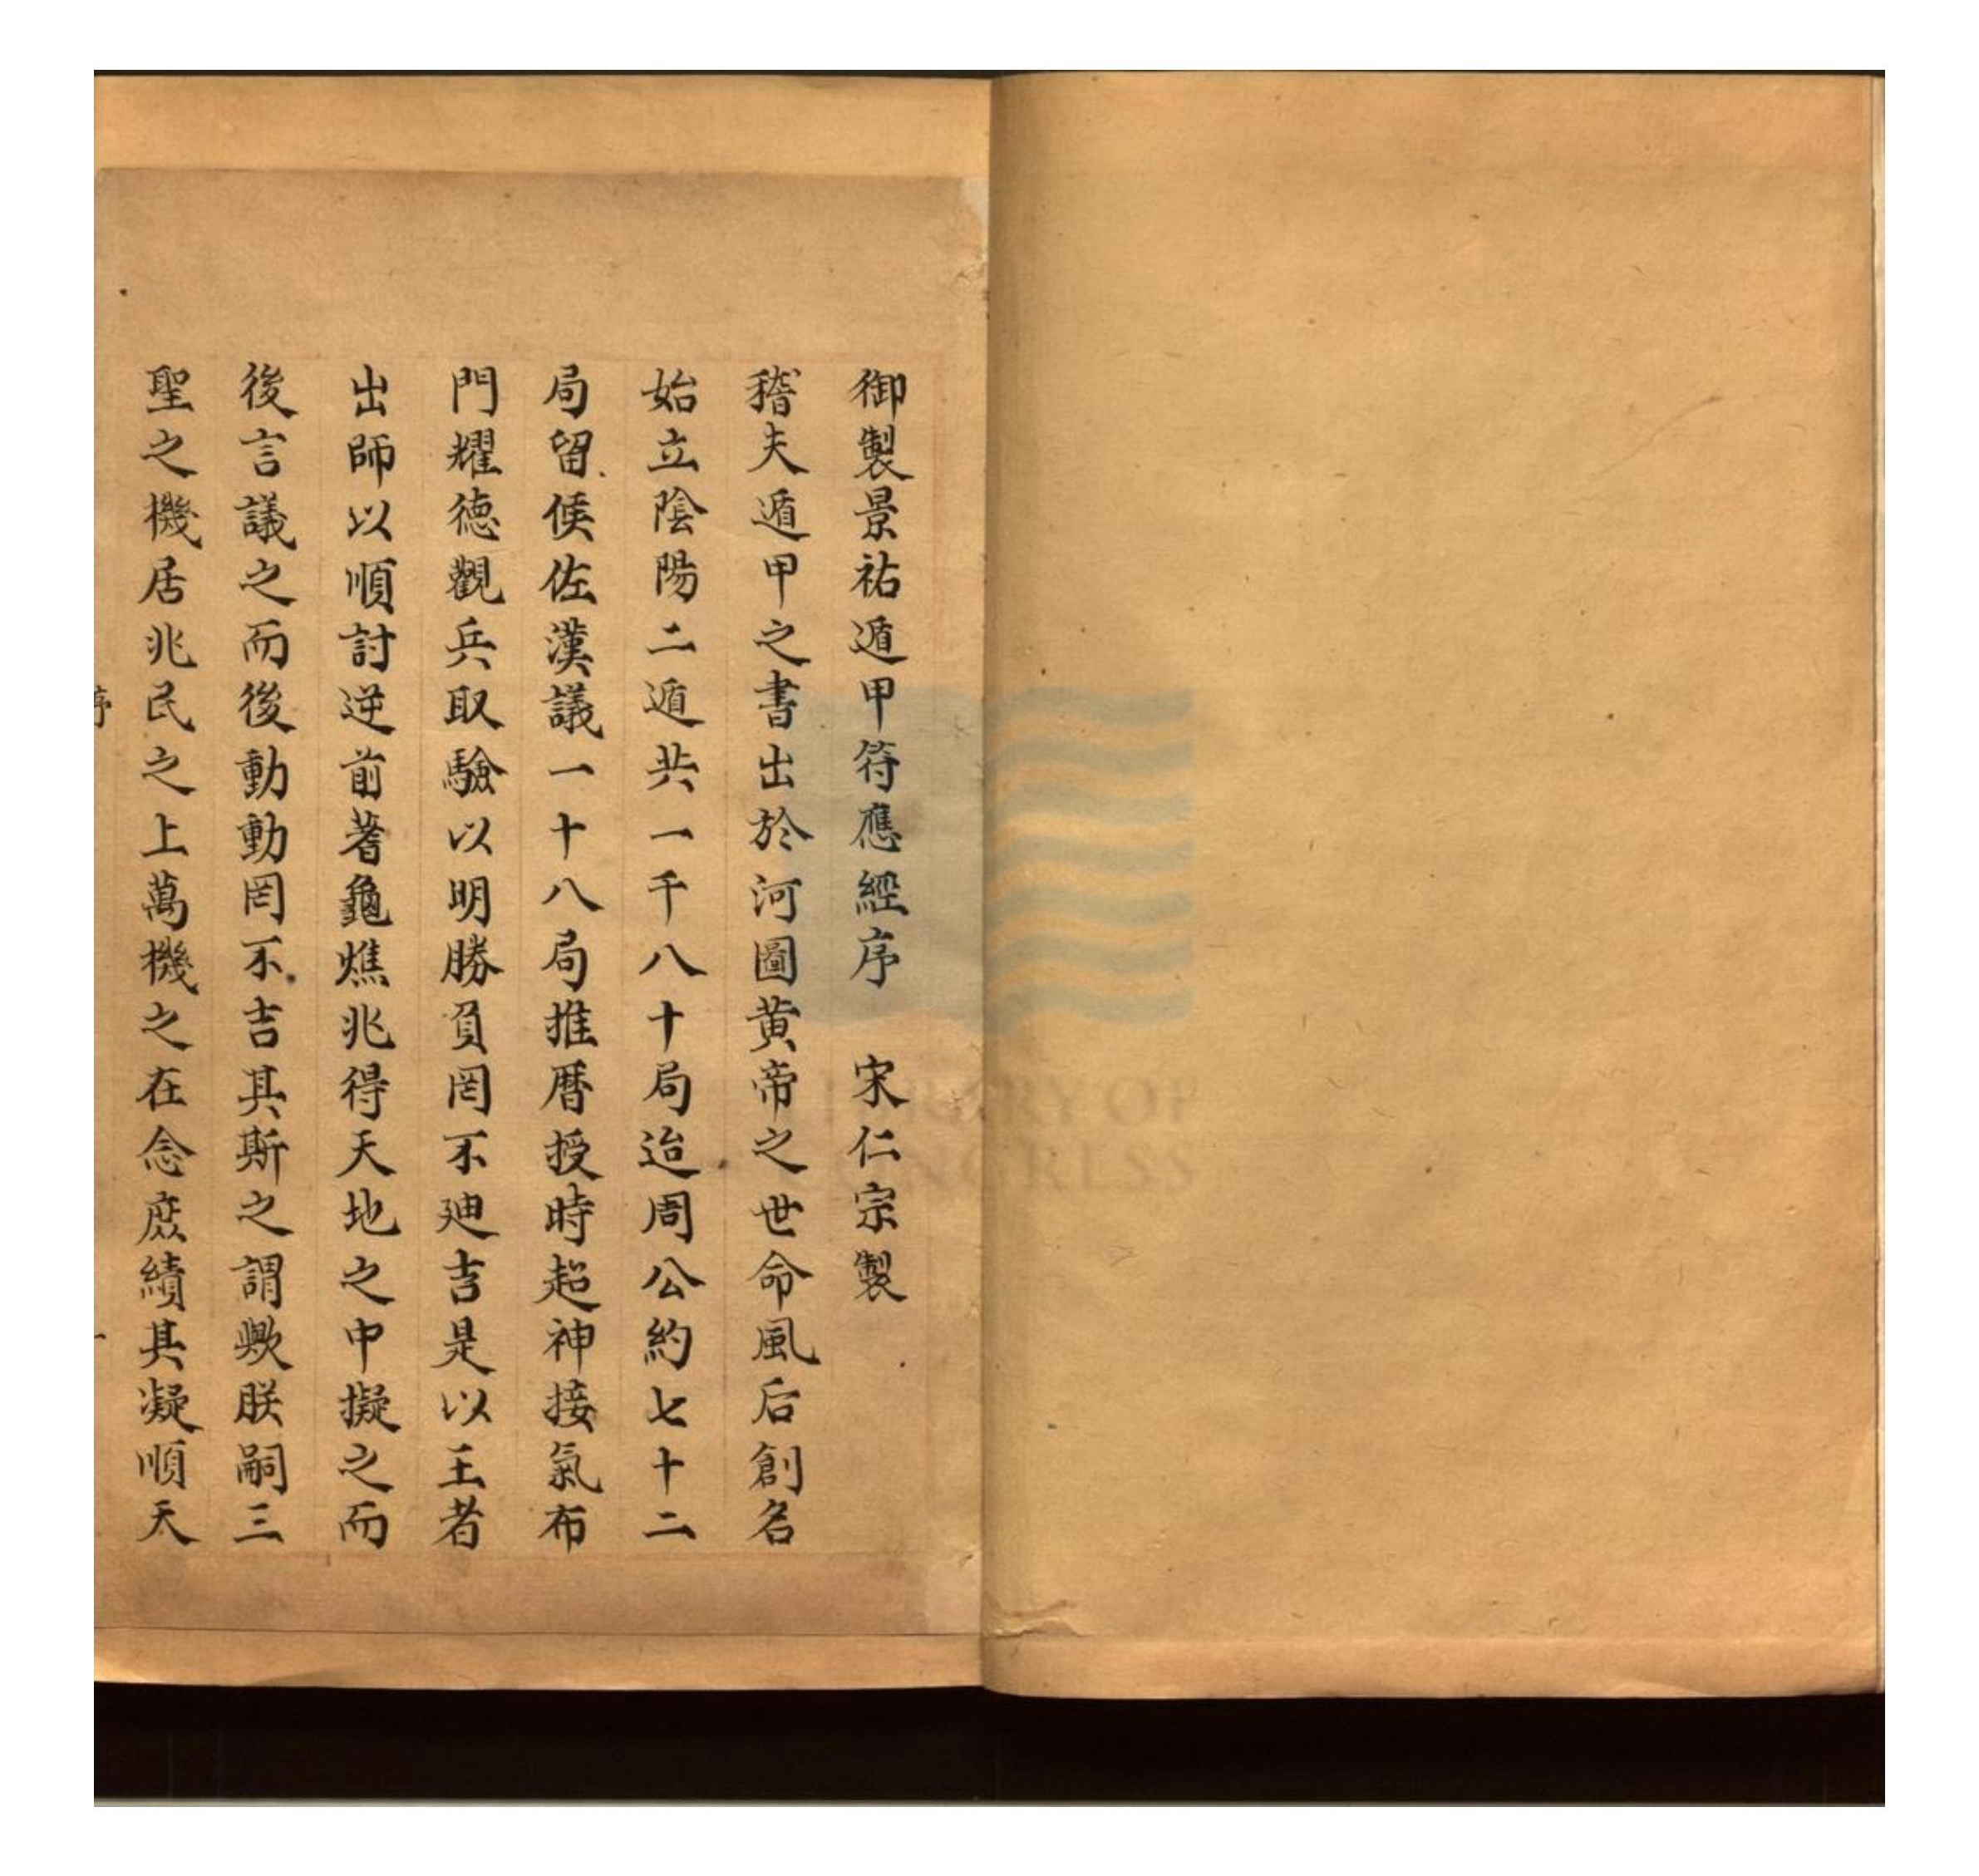 御製景祐遁甲符應經序　宋仁宗製
稽夫遁甲之書出於河圖黄帝之世命風后創名
始立陰陽二遁共一千八十局迨周公約七十二
局留侯佐漢議一十八局推曆授時超神接氣布
門耀徳觀兵取驗以明勝負罔不廸吉是以王者
出師以順討逆前蓍龜燋兆得天地之中擬之而
後言議之而後動動罔不吉其斯之謂歟朕嗣三
聖之機居兆民之上萬機之在念庶績其凝順天
序
一
LIBRARY OF
CONGRESS